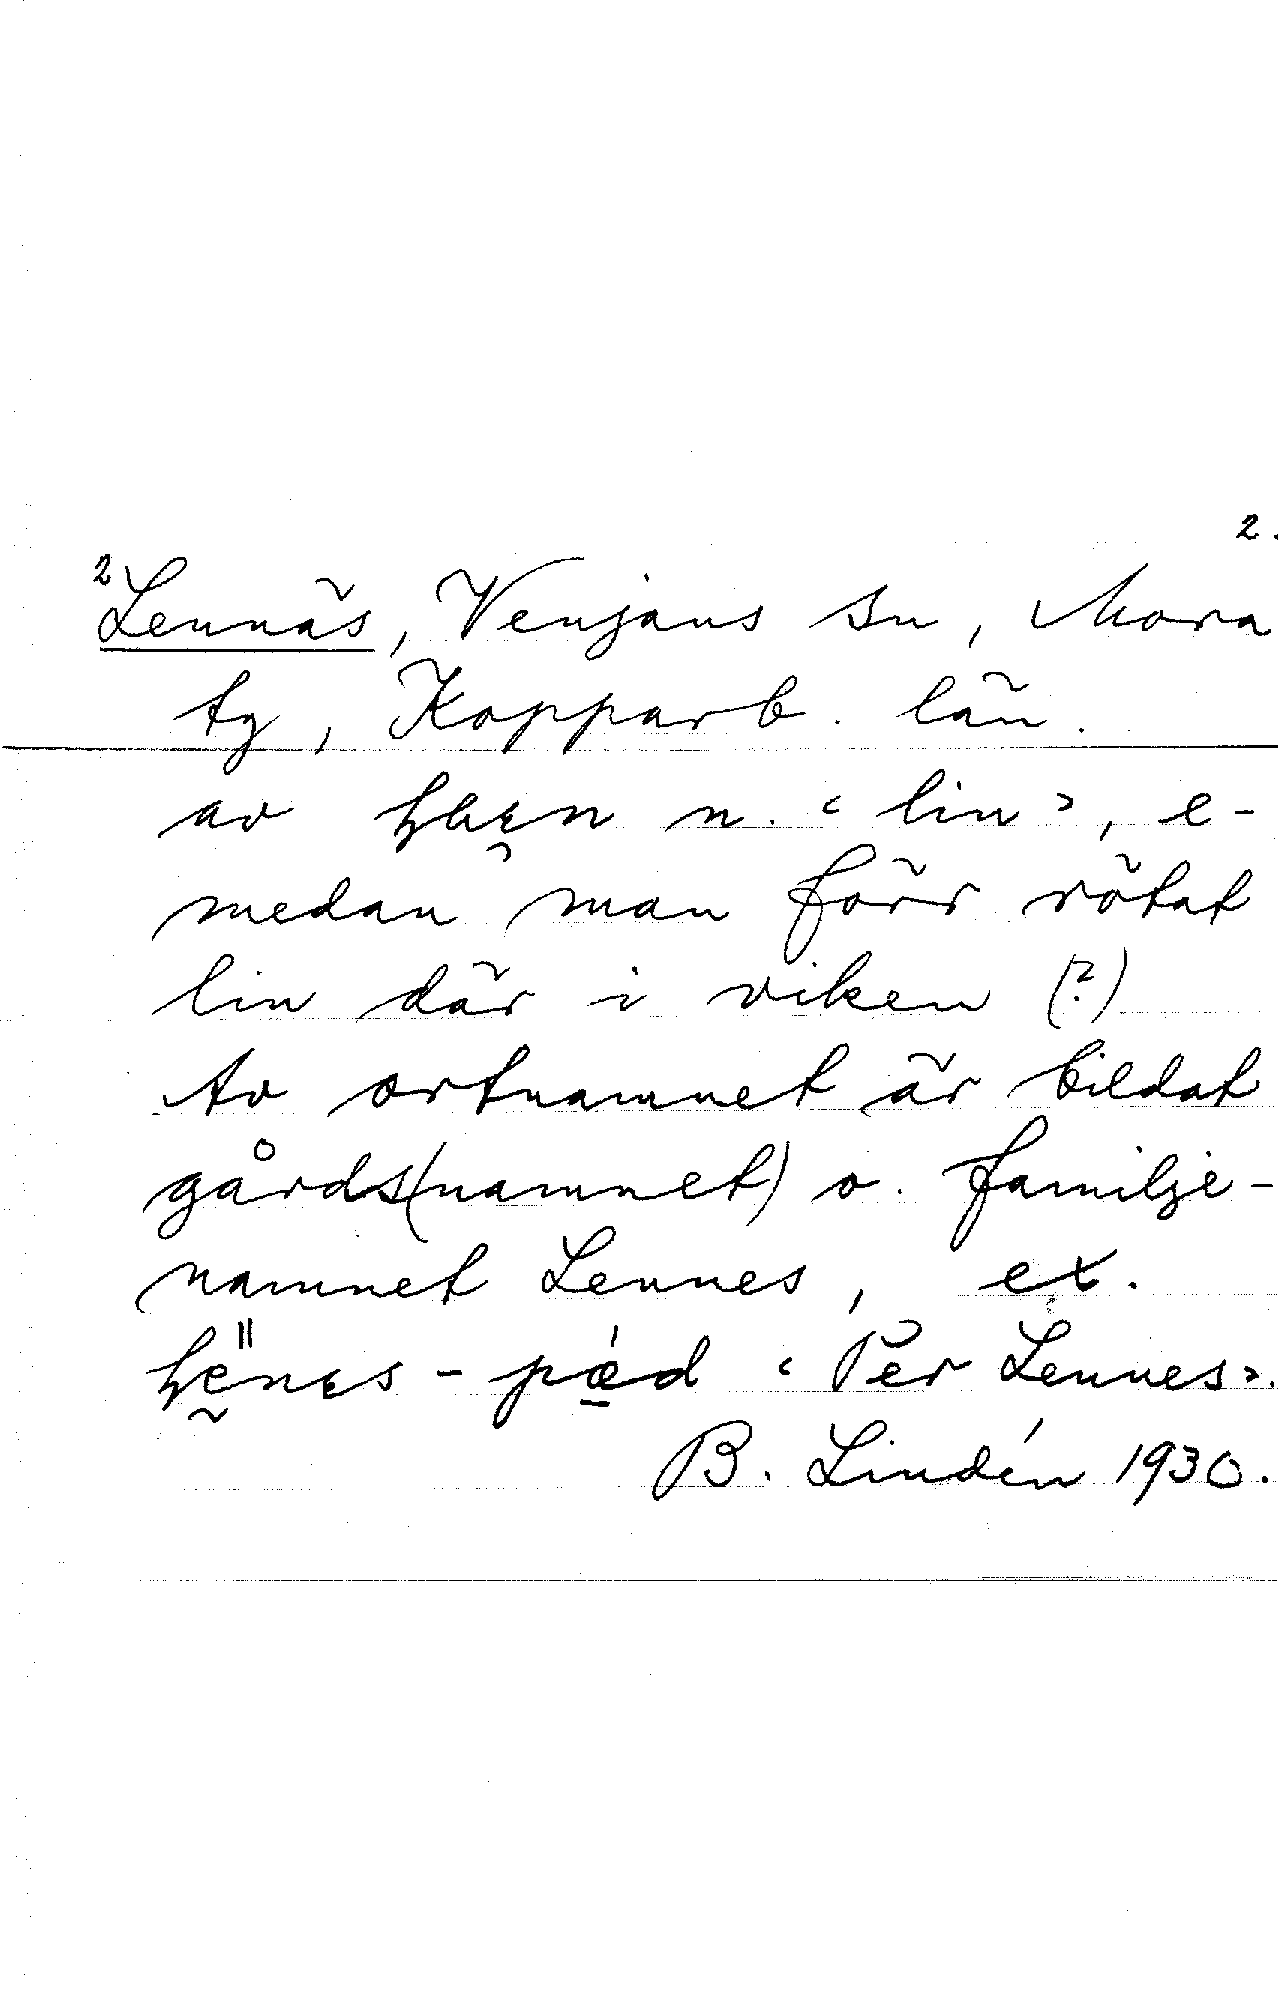 2.
²Lennäs, Venjans sn, Mora
tg, Kopparb. län.
av n. ‹ lin ›, e-
medan man förr rötat
lin där i viken (?)
Av ortnamnet är bildat
gårds(namnet) o. familje-
namnet Lennes, ex.
‹ Per Lennes ›.
B. Lindén 1930.